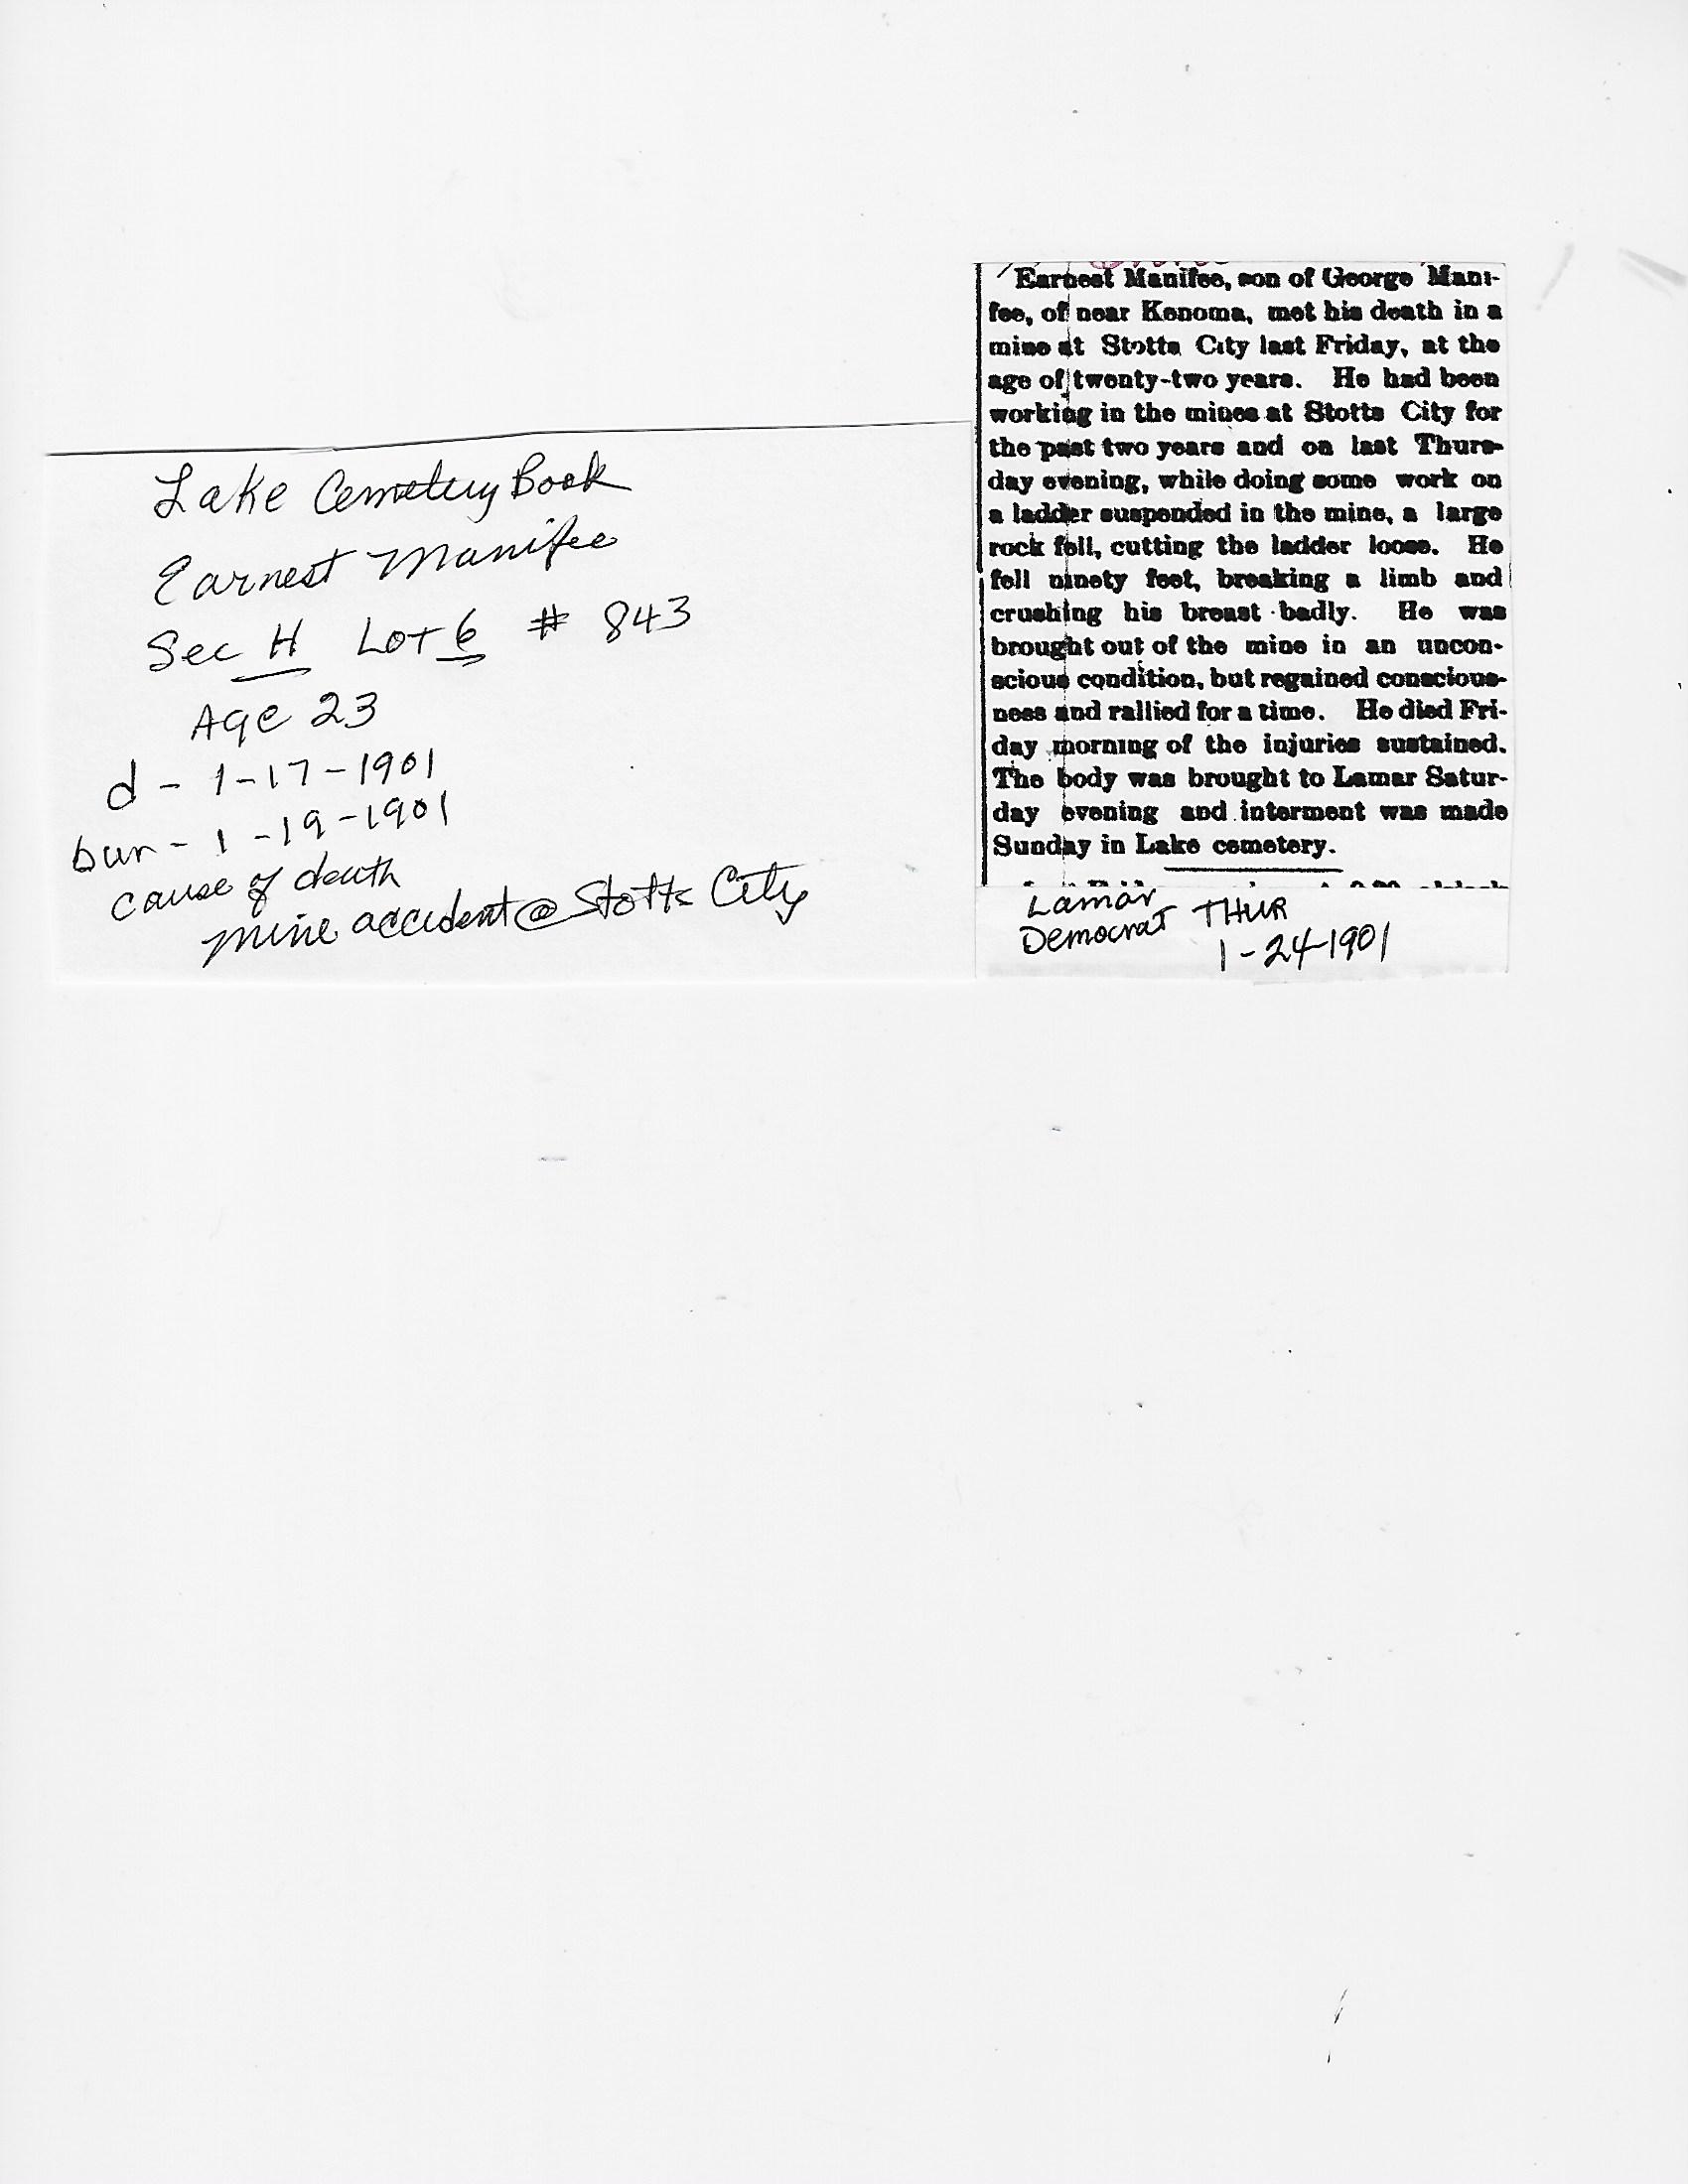 Lake Cemetery Book
Earnest Manifee
Sec H Lot 6 # 843
Age 23
d - 1-17-1901
bur - 1-19-1901
cause of death
mine accident @ Stotts City
Earnest Manifee, son of George Mani-
fee, of near Kenoma, met his death in a
mine at Stotts City last Friday, at the
age of twenty-two years. He had been
working in the mines at Stotts City for
the past two years and on last Thurs-
day evening, while doing some work on
a ladder suspended in the mine, a large
rock fell, cutting the ladder loose. He
fell ninety feet, breaking a limb and
crushing his breast badly. He was
brought out of the mine in an uncon-
scious condition, but regained conscious-
ness and rallied for a time. He died Fri-
day morning of the injuries sustained.
The body was brought to Lamar Satur-
day evening and interment was made
Sunday in Lake cemetery.
Lamar
Democrat THUR
1-24-1901